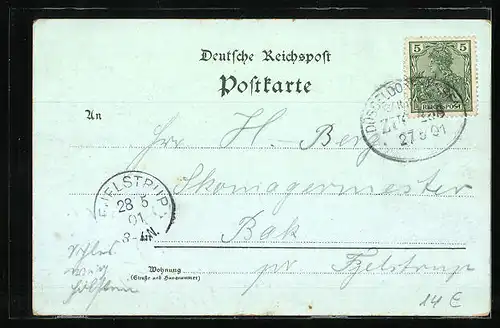 Deutsche Reichspost
Postkarte
5 5
REICHSPOST
An
27 5 01
H. Berg
Skomagermester
Bak
pr Fjelstrup
FJELSTRUP
28 5
01
8-9N.
Wohnung
(Straße und Hausnummer)
14 €